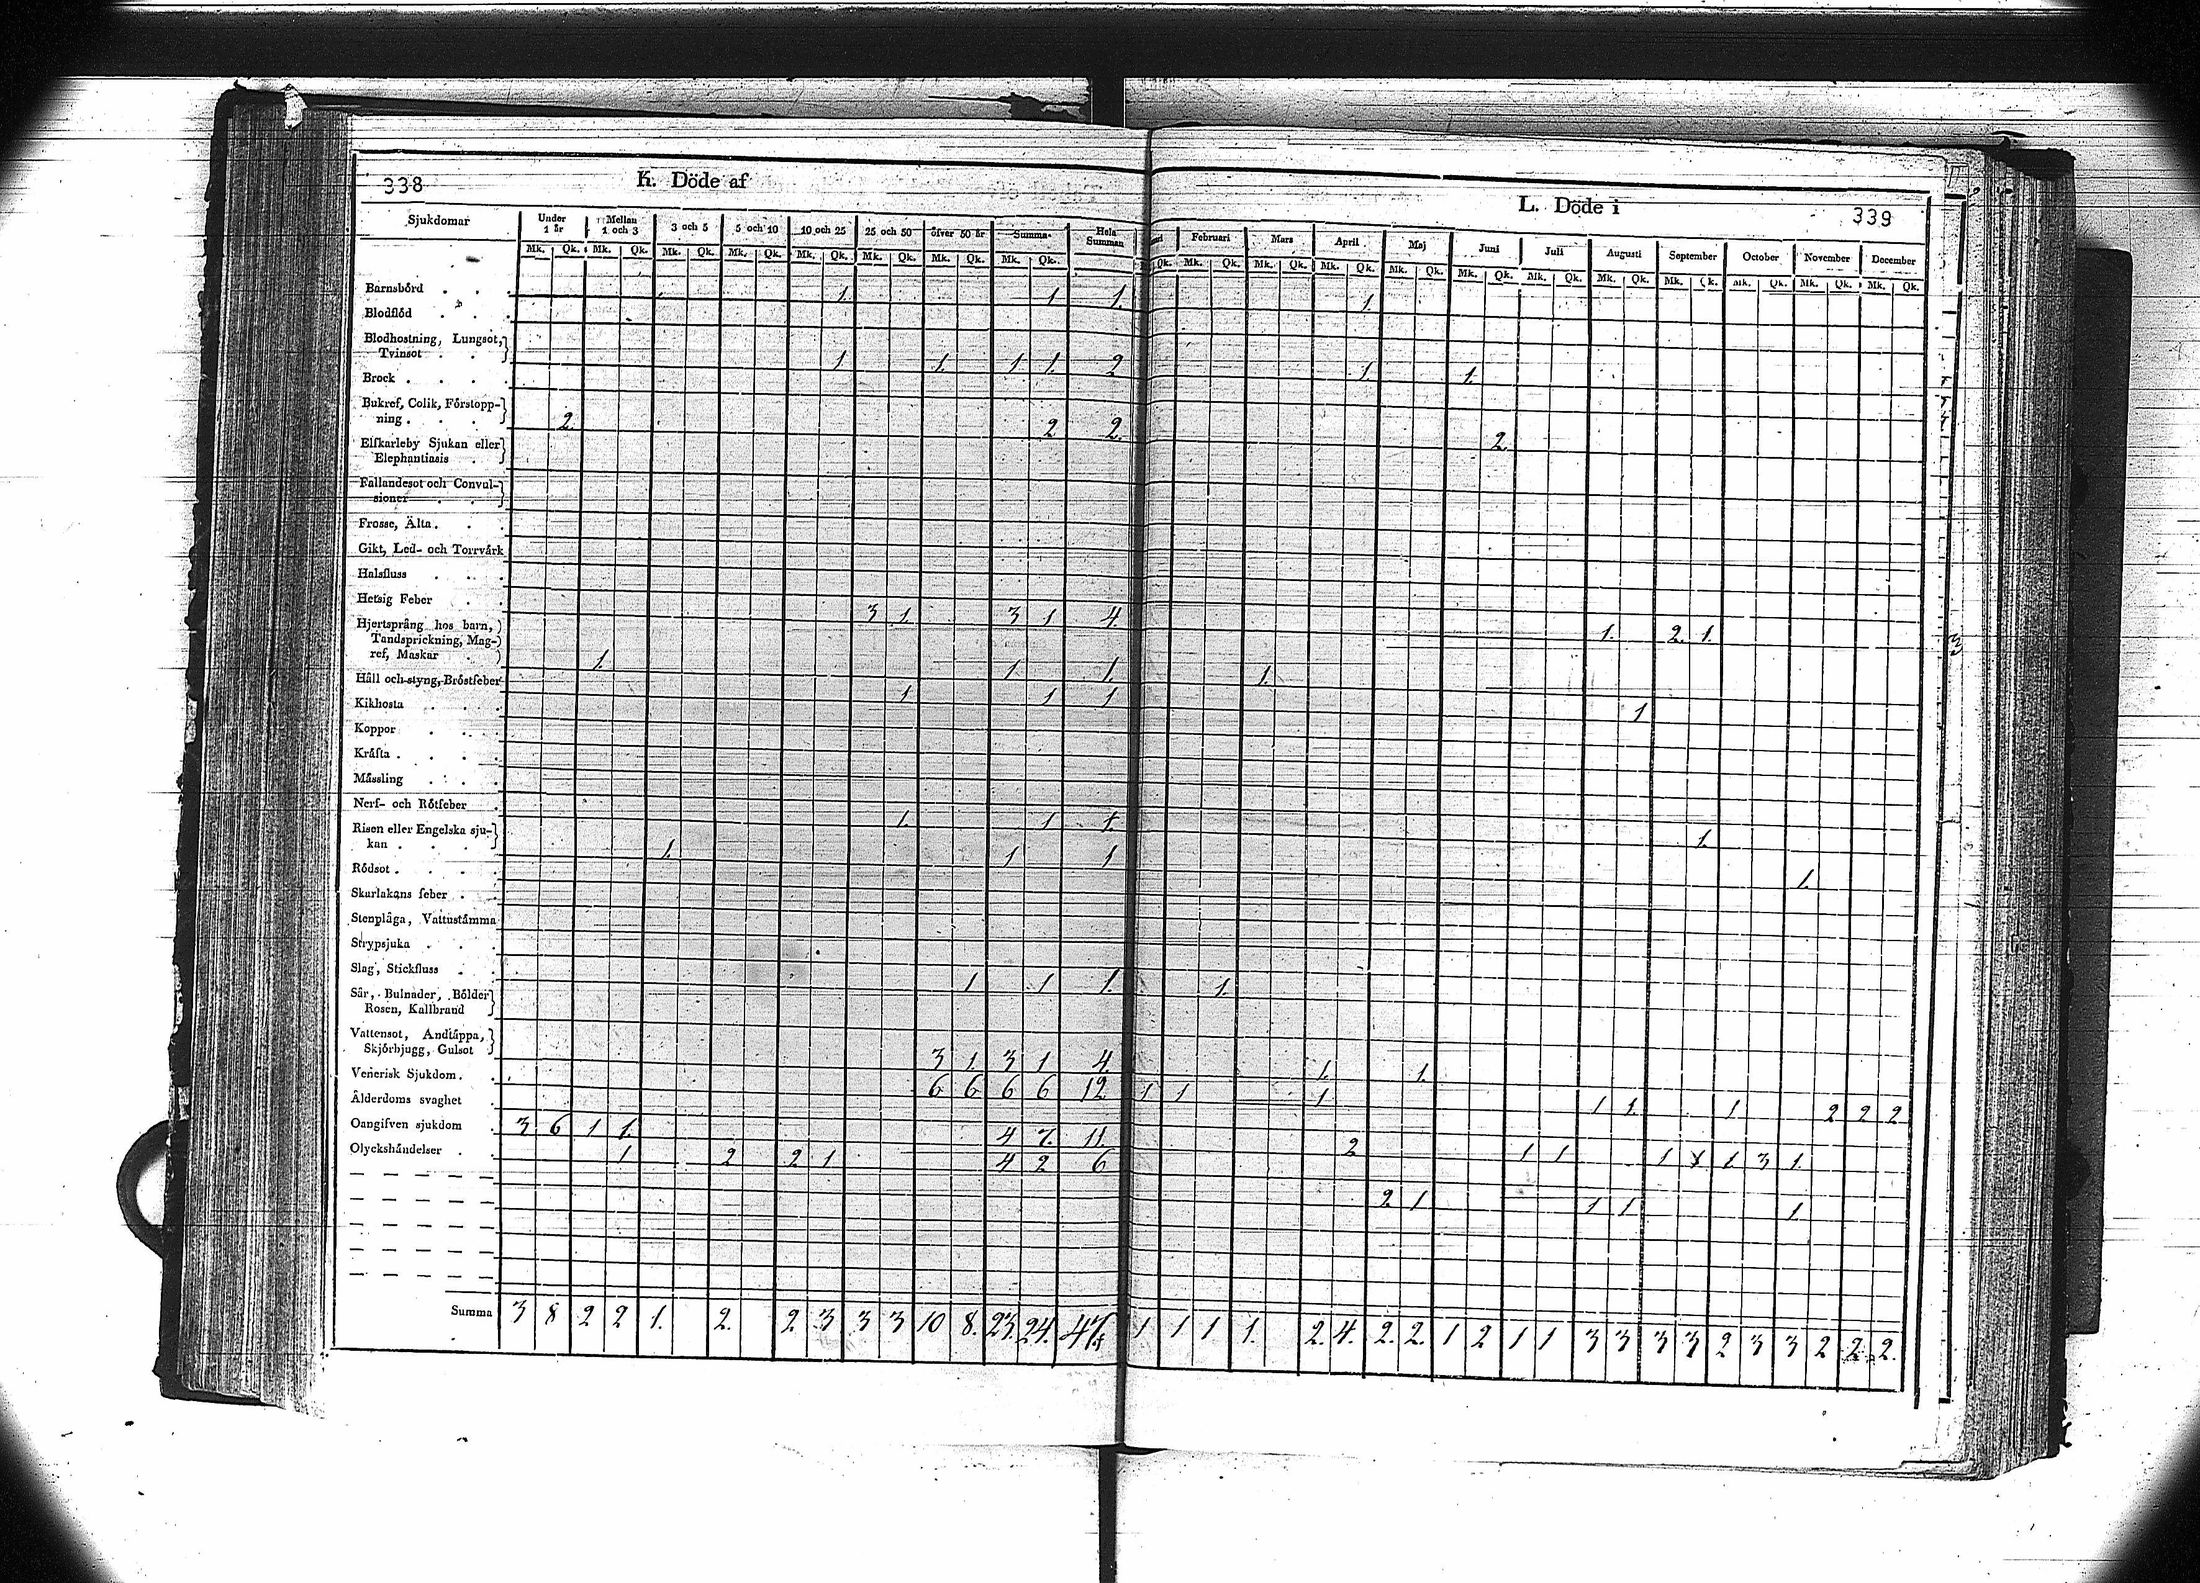 338
K. Döde af
Sjukdomar Under 1 år Mellan 1 och 3 3 och 5 5 och 10 10 och 25 25 och 50 öfver 50 år Summa Hela Summan
Mk. Qk. Mk. Qk. Mk. Qk. Mk. Qk. Mk. Qk. Mk. Qk. Mk. Qk. Mk. Qk.
Barnsbörd 1. 1 1.
Blodflöd
Blodhostning, Lungsot,
Tvinsot 1 1. 1 1. 2
Brock
Bukref, Colik, Förstopp-
ning 2. 2 2.
Elfkarleby Sjukan eller
Elephantiasis
Fallandesot och Convul-
sioner
Frosse, Älta
Gikt, Led- och Torrvärk
Halsfluss
Hetsig Feber 3 1. 3 1 4.
Hjertsprång hos barn,
Tandsprickning, Mag-
ref, Maskar 1. 1 1.
Håll och styng, Bröstfeber 1 1 1
Kikhosta
Koppor
Kräfta
Mässling
Nerf- och Rötfeber 1. 1 1.
Risen eller Engelska sju-
kan 1. 1 1
Rödsot
Skarlakans feber
Stenplåga, Vattustämma
Strypsjuka
Slag, Stickfluss 1 1 1.
Sår, Bulnader, Bölder
Rosen, Kallbrand
Vattensot, Andtäppa,
Skjörbjugg, Gulsot 3 1. 3 1 4.
Venerisk Sjukdom
Ålderdoms svaghet 6 6 6 6 12
Oangifven sjukdom 3 6 1 1. 4 7. 11.
Olyckshändelser 1 2 2 1 4 2 6
Summa 3 8 2 2 1. 2. 2 3 3 3 10 8. 23. 24. 47.
339
L. Döde i
Februari Mars April Maj Juni Juli Augusti September October November December
Qk. Mk. Qk. Mk. Qk. Mk. Qk. Mk. Qk. Mk. Qk. Mk. Qk. Mk. Qk. Mk. Qk. Mk. Qk. Mk. Qk. Mk. Qk.
1.
1. 1.
2.
1. 2. 1.
1.
1
1.
1.
1.
1. 1.
1 1 1 1 1. 1 2 2 2
2 1 1 1 1 3 1.
2 1 1 1 1.
1 1 1 1. 2. 4. 2. 2. 1 2 1 1 3 3 3 3 2 3 3 2 2 2.